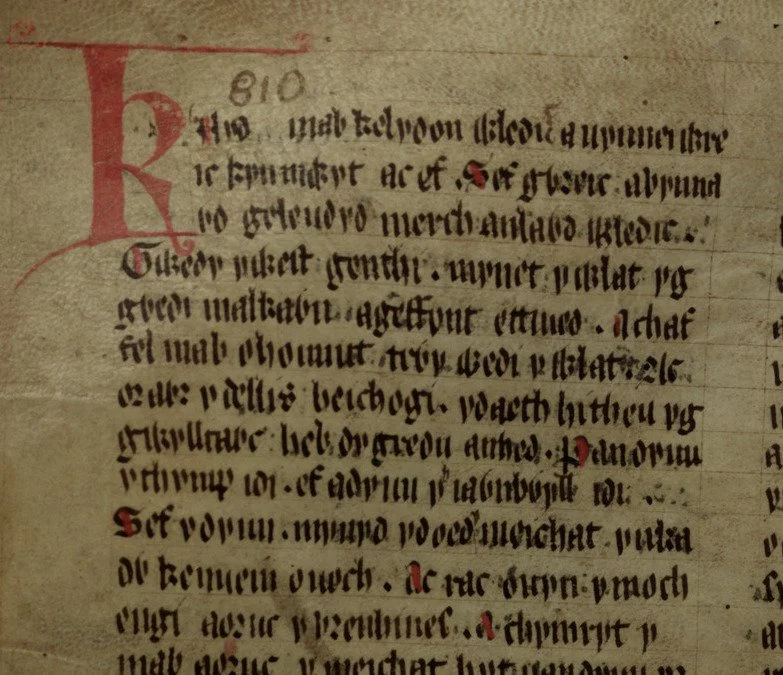 810
Kilyd mab kelydon wledic a uynnei wre
ic kynmỽyt ac ef. Sef gỽreic a uynna
ỽd goleudyd merch anlaỽd wledic.
Gwedy y west genthi. mynet y wlat yg
gỽedi malkaỽn ageffynt ettiued. achaf
fel mab ohonunt trỽy wedi y wlat. Ac
or aỽr y delis beichogi. yd aeth hitheu yg
gỽylltaỽc heb dygredu anhed. Pan dyuu
y thymp idi. ef adyuu y iaỽnbỽyll idi.
Sef y dyuu. mynyd yd oed meichat yn ka
dỽ kenuein o uoch. Ac rac ouyn y moch
engi aoruc y vrenhines. A chymryt y
mab aoruc y meichat hyt pan dyuu yr